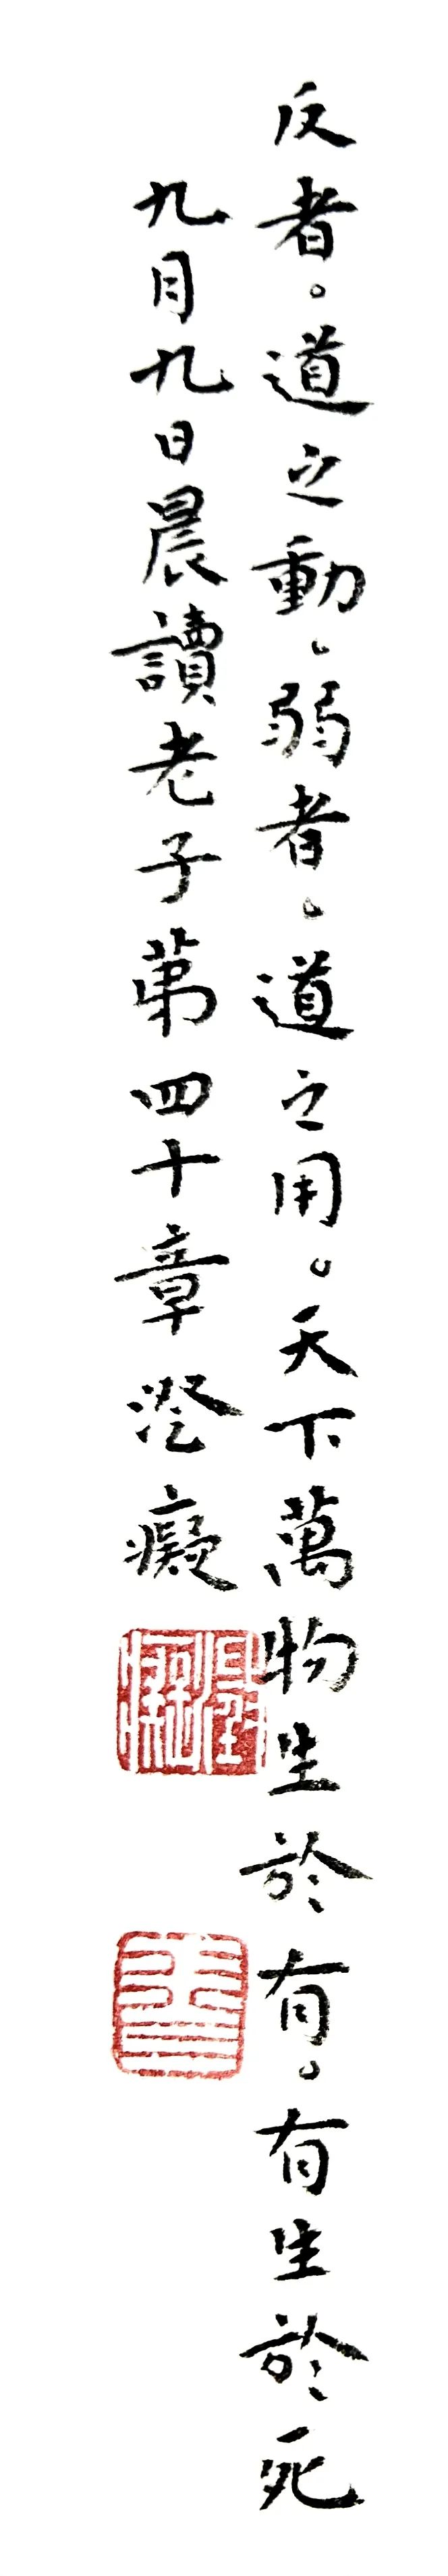 反者。道之動。弱者。道之用。天下萬物生於有。有生於死
九月九日晨讀老子第四十章澄癡